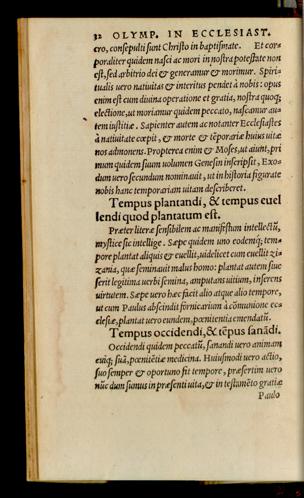 32 OLYMP. IN ECCLESIAST.
ero, consepulti sunt Christo in baptismate. Et cor-
poraliter quidem nasci ac mori in nostra potestate non
est, sed arbitrio dei & generamur & morimur. Spiri-
tualis uero natiuitas & interitus pendet à nobis: opus
enim est cum diuina operatione et gratia, nostra quoq;
electione, ut moriamur quidem peccato, nascamur au-
tem iustitiæ. Sapienter autem ac notanter Ecclesiastes
à natiuitate cœpit, & morte & tẽporariæ huius uitæ
nos admonens. Propterea enim & Moses, ut aiunt, pri
mum quidem suum uolumen Genesin inscripsit, Exo-
dum uero secundum nominauit, ut in historiæ figurate
nobis hanc temporariam uitam describeret.
Tempus plantandi, & tempus euel
lendi quod plantatum est.
Præter literæ sensibilem ac manifestum intellectũ,
mystice sic intellige. Sæpe quidem uno eodemq; tem-
pore plantat aliquis & euellit, uidelicet cum euellit zi-
zania, quæ seminauit malus homo: plantat autem siue
serit legitima uerbi semina, amputans uitium, inserens
uirtutem. Sæpe uero hæc facit alio atque alio tempore,
ut cum Paulus abscindit fornicarium à cõmunione ec-
clesiæ, plantat uero eundem, pœnitentia emendatũ.
Tempus occidendi, & tẽpus sanãdi.
Occidendi quidem peccatũ, sanandi uero animam
cuiq; suã, pœnitẽtiæ medicina. Huiusmodi uero actio,
suo semper & oportuno fit tempore, præsertim uero
nũc dum sumus in præsenti uita, & in testimõio gratiæ
Paulo